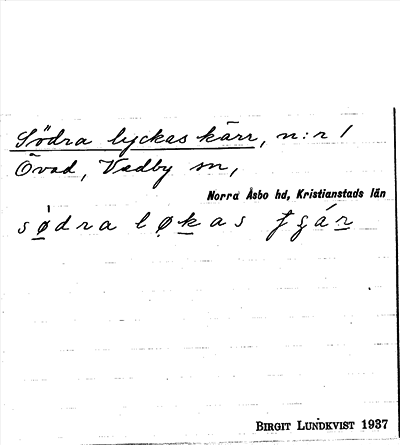 Södra lyckas kärr, n:r 1
Övad, Vedby sn,
Norra Åsbo hd, Kristianstads län
sø̀dra løkas
BIRGIT LUNDKVIST 1937